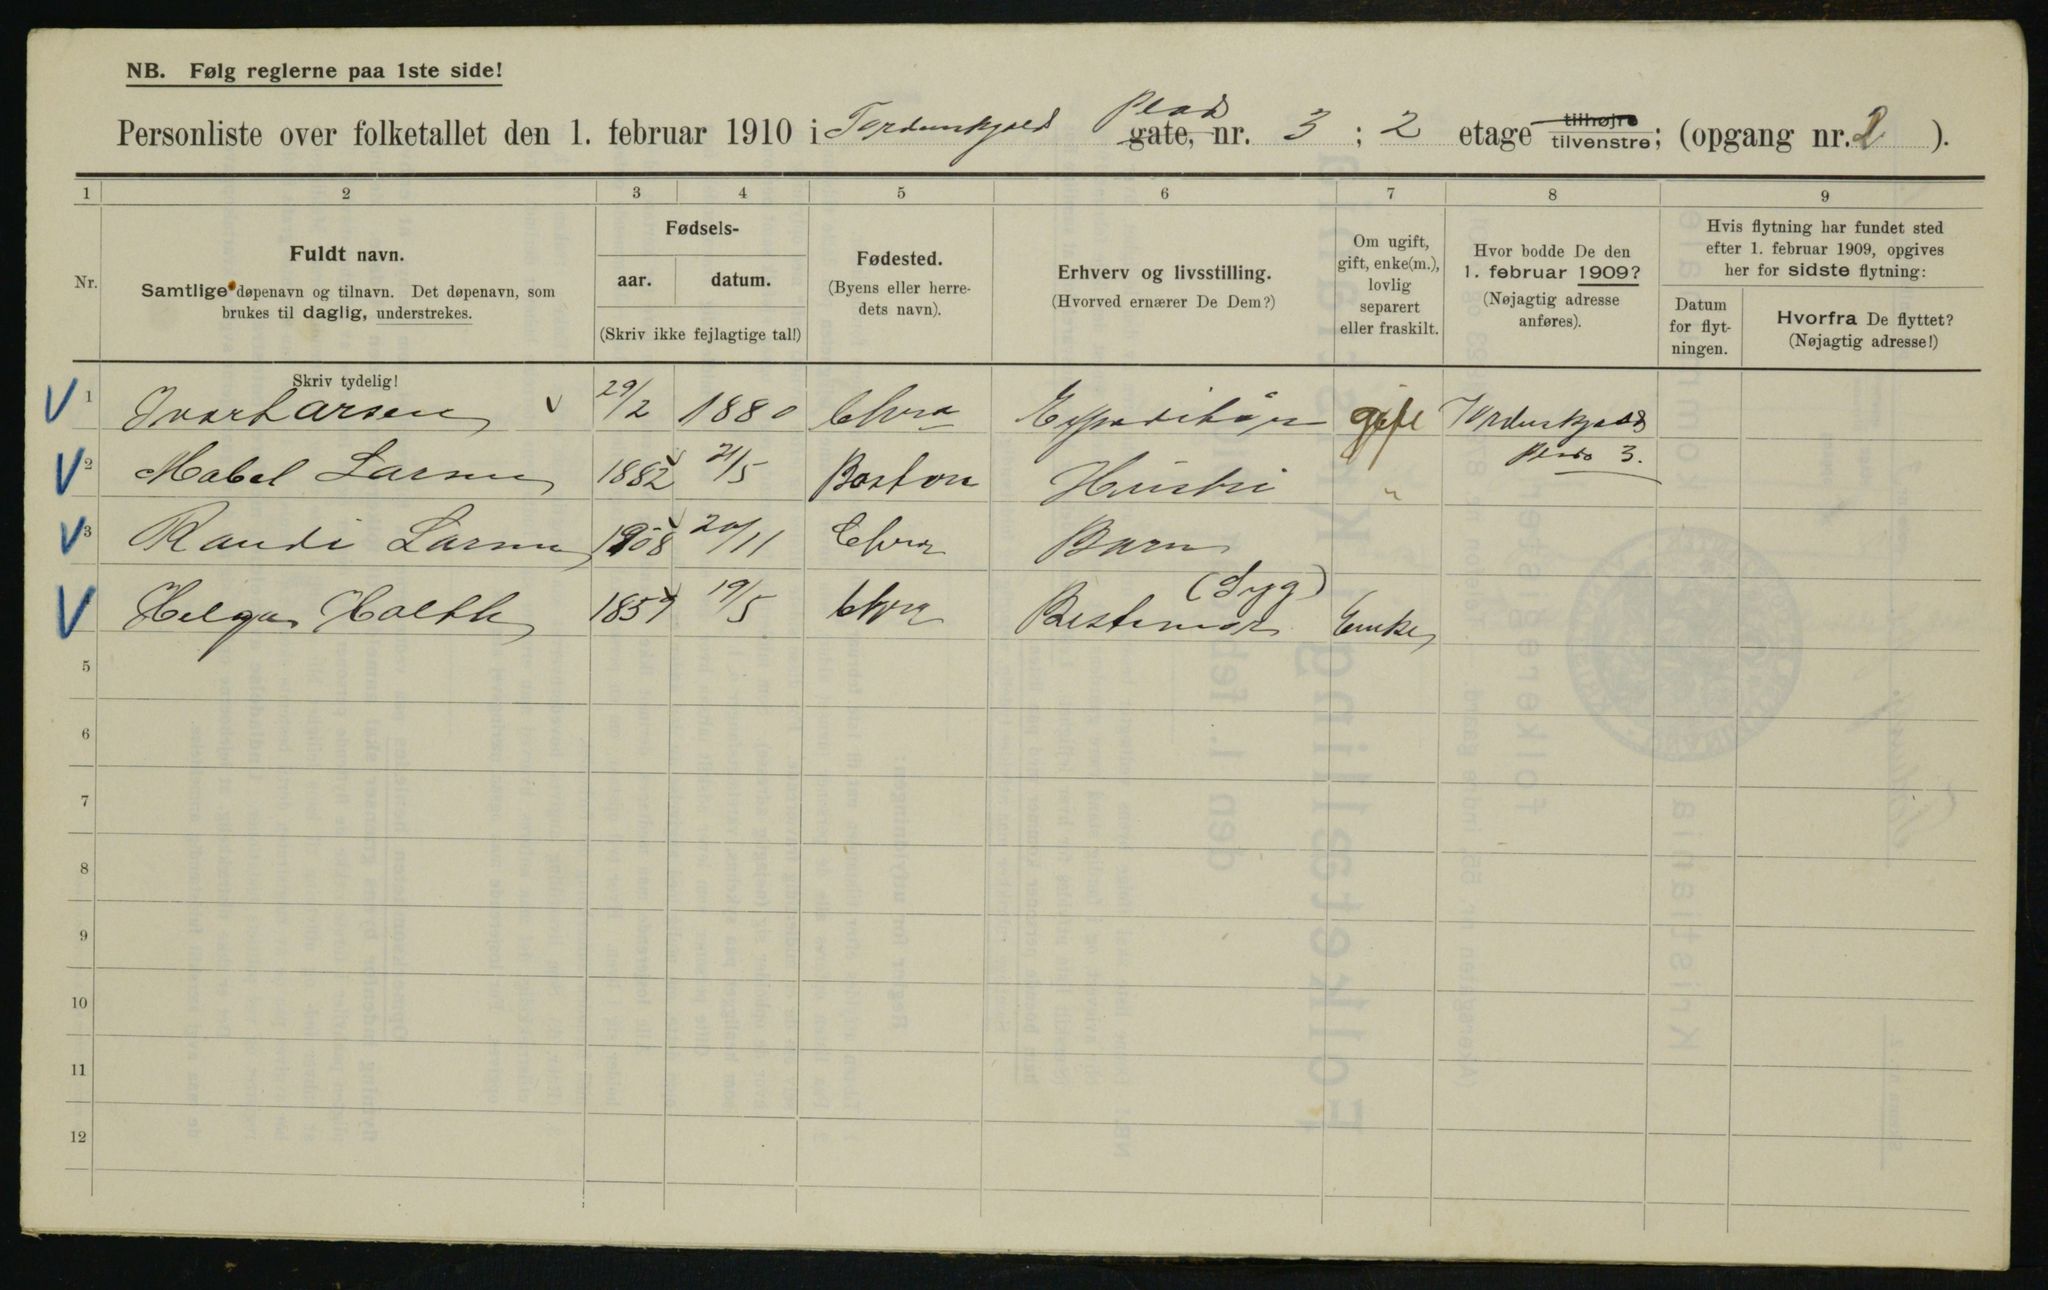 NB. Følg reglerne paa 1ste side!
Personliste over folketallet den 1. februar 1910 i Tordenskjolds Plads gate, nr. 3 ; 2 etage tilhøjre tilvenstre; (opgang nr. 2 ).
1 2 3 4 5 6 7 8 9
Nr.
Fuldt navn.
Samtlige døpenavn og tilnavn. Det døpenavn, som
brukes til daglig, understrekes.
Fødsels-
aar. datum.
(Skriv ikke fejlagtige tal!)
Fødested.
(Byens eller herre-
dets navn).
Erhverv og livsstilling.
(Hvorved ernærer De Dem?)
Om ugift,
gift, enke(m.),
lovlig
separert
eller fraskilt.
Hvor bodde De den
1. februar 1909?
(Nøjagtig adresse
anføres).
Hvis flytning har fundet sted
efter 1. februar 1909, opgives
her for sidste flytning:
Datum
for flyt-
ningen.
Hvorfra De flyttet?
(Nøjagtig adresse!)
Skriv tydelig!
1 Ivar Larsen 29/2 1880 Chra Expeditør gift Tordenskjolds
Plads 3.
2 Mabel Larsen 1882 21/5 Boston Hustru "
3 Randi Larsen 1908 20/11 Chra Barn
(Syg)
Helga Holth 1859 19/5 Chra Bestemor Enke
5
6
7
8
9
10
11
12